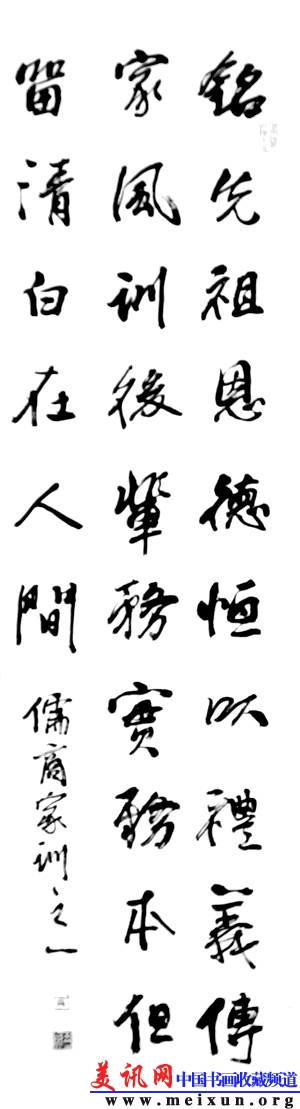 銘先祖恩德恒以禮義傳
家風訓後輩務實務本但
留清白在人間
儒商家訓之一
美讯网 中国书画收藏频道
www.meixun.org